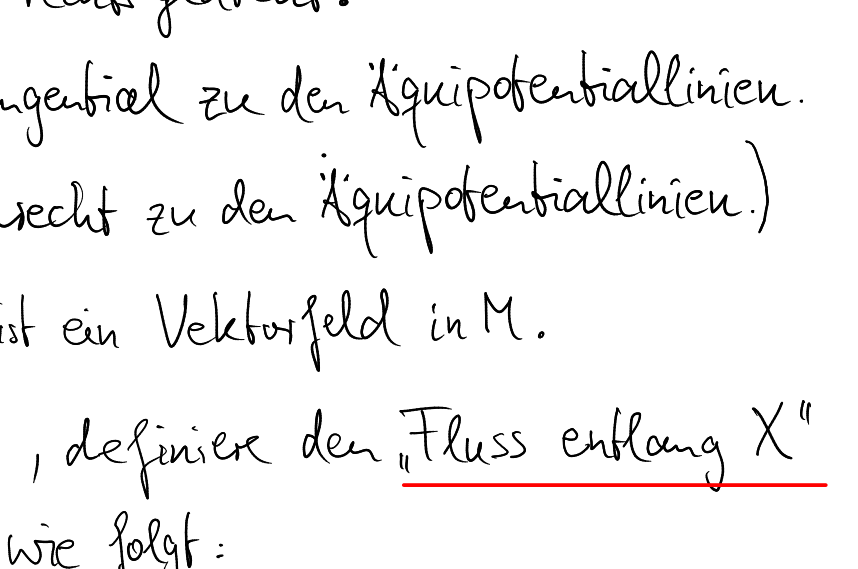 ngential zu den Äquipotentiallinien.
recht zu den Äquipotentiallinien.)
ist ein Vektorfeld in M.
, definiere den „Fluss entlang X“
wie folgt: